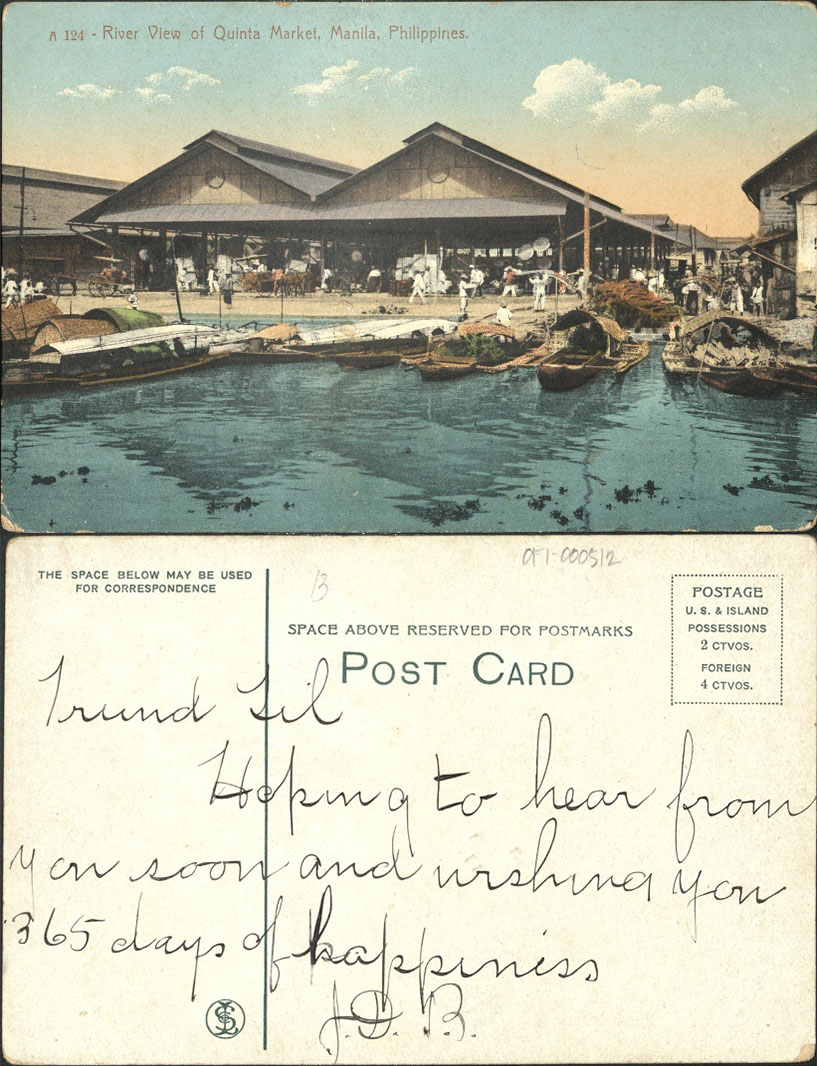 A 124 - River View of Quinta Market, Manila, Philippines.
THE SPACE BELOW MAY BE USED
FOR CORRESPONDENCE
13
OF1-000512
SPACE ABOVE RESERVED FOR POSTMARKS
POST CARD
POSTAGE
U. S. & ISLAND
POSSESSIONS
2 CTVOS.
FOREIGN
4 CTVOS.
Friend Lil
Hoping to hear from
you soon and wishing you
365 days of happiness
J. D. B.